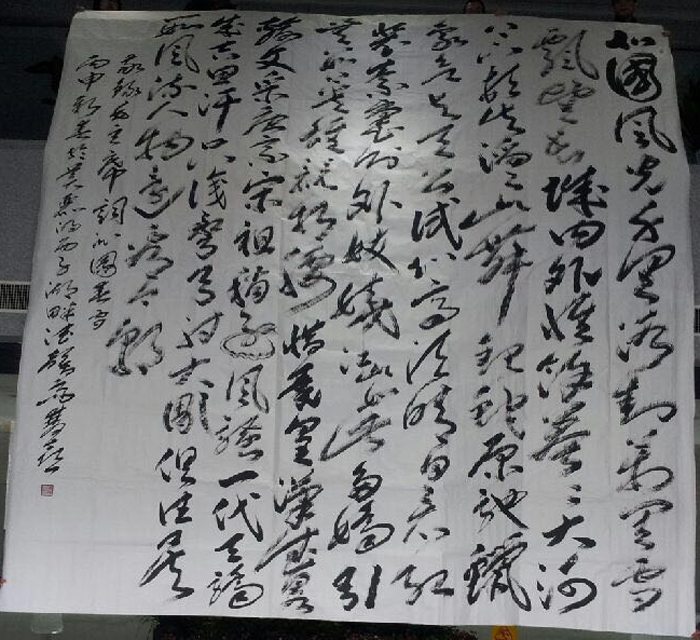 北國風光千里冰封萬里雪
飄望長城内外惟餘莽〻大河
上下頓失滔〻山舞銀蛇原馳蠟
象欲与天公試比高須晴日看紅
裝素裹分外妖嬈江山如此多嬌引
無數英雄競折腰惜秦皇漢武略
輸文采唐宗宋祖稍遜風騷一代天驕
成吉思汗只識彎弓射大雕俱往矣
數風流人物還看今朝
敬錄毛主席詞沁園春雪
丙申新春於西子湖畔